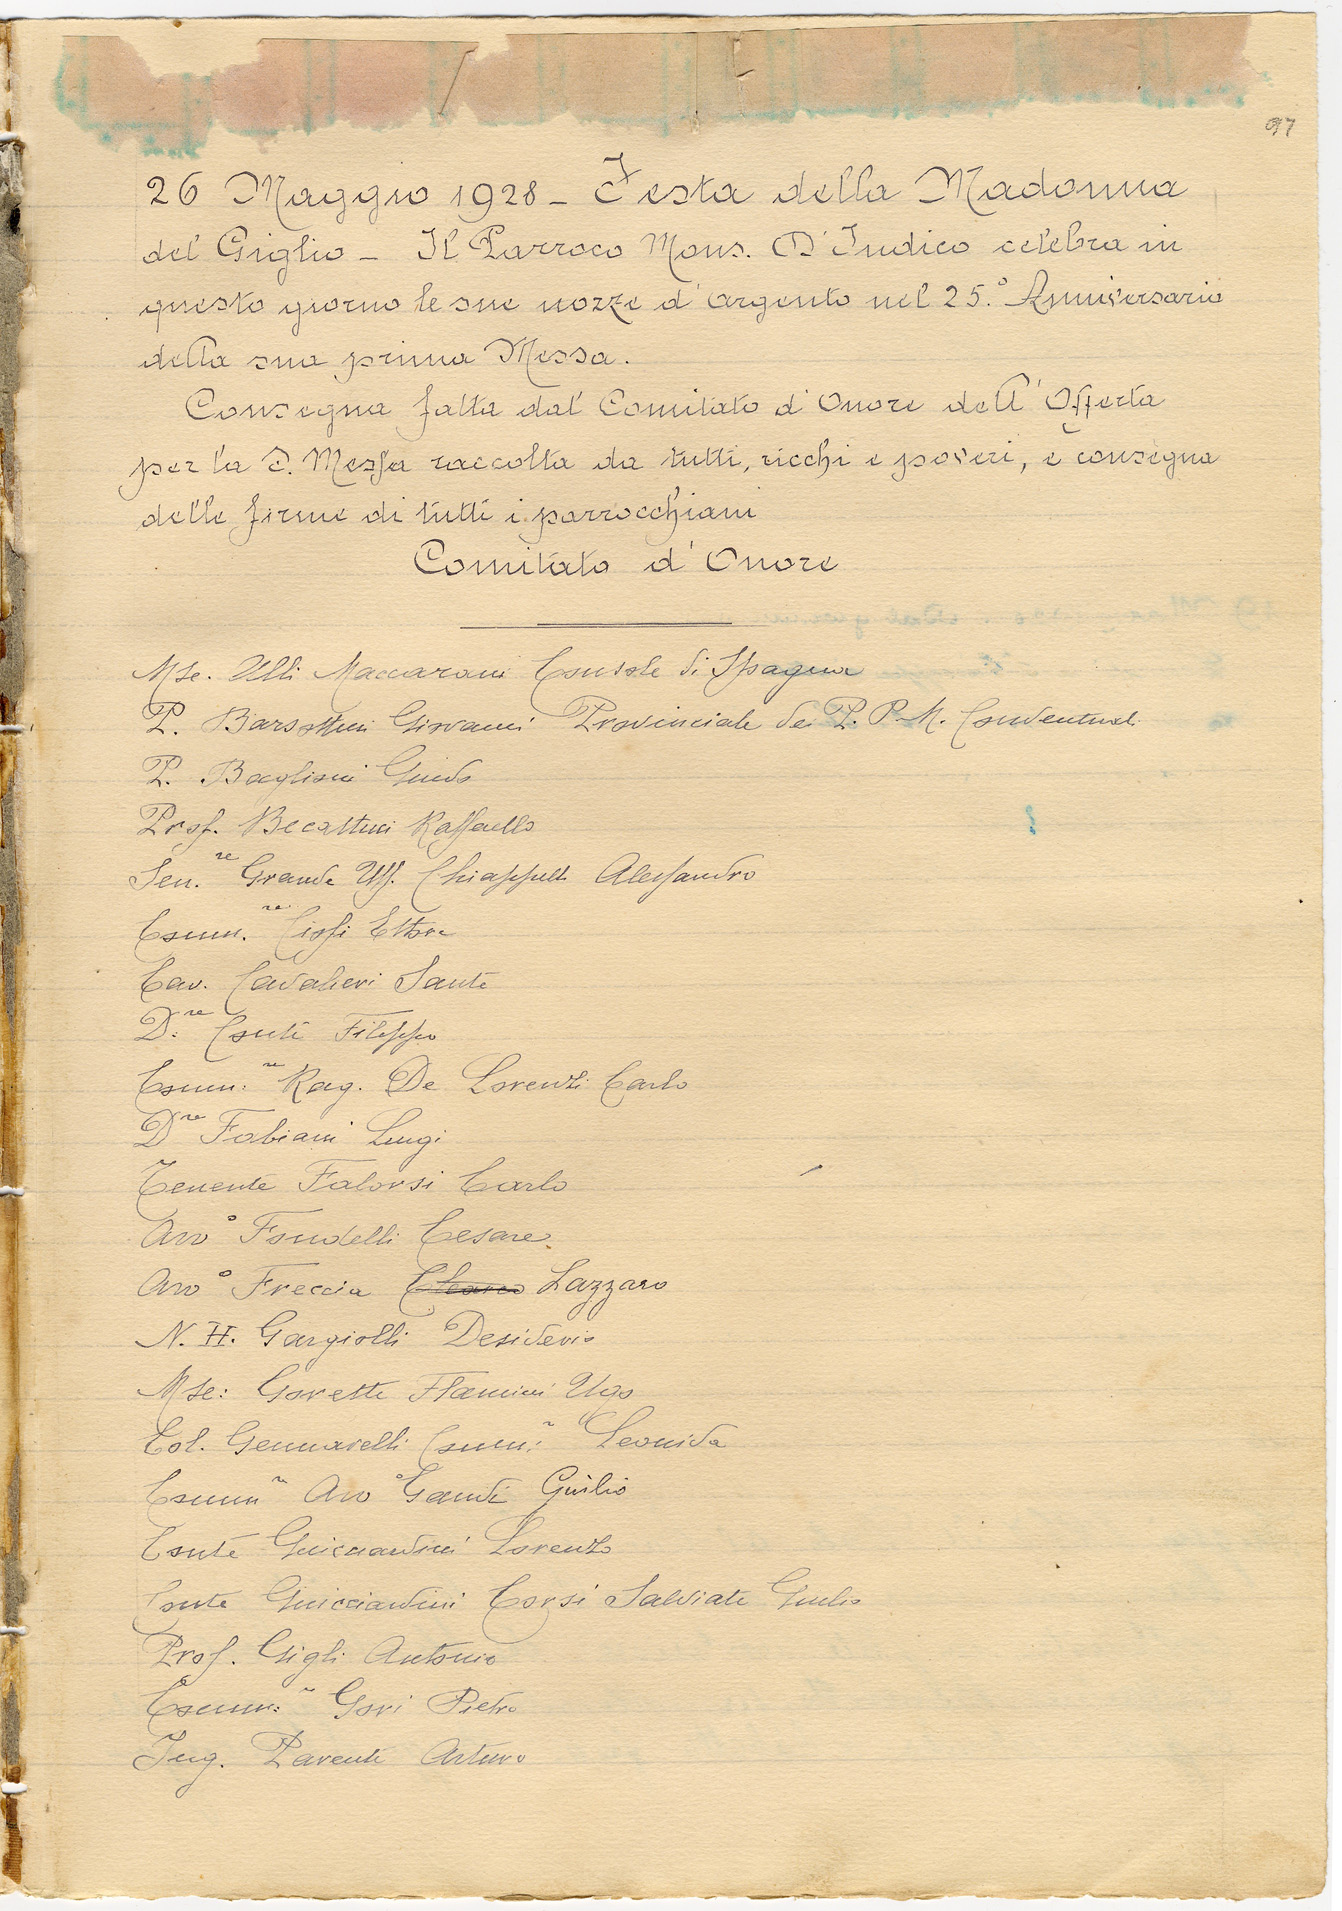 97
26 Maggio 1928 – Festa della Madonna
del Giglio – Il Parroco Mons. D'Indico celebra in
questo giorno le sue nozze d'argento nel 25.° Anniversario
della sua prima Messa.
Consegna fatta dal Comitato d'Onore dell'Offerta
per la S. Messa raccolta da tutti, ricchi e poveri, e consegna
delle firme di tutti i parrocchiani
Comitato d'Onore
Mse. Ulli Maccarani Console di Spagna
P. Barsottini Giovanni Provinciale dei P. P. M. Conventuali
P. Baglioni Guido
Prof. Becattini Raffaello
Sen.re Grande Uff. Chiappelli Alessandro
Comm.re Ciolfi Ettore
Cav. Cavalieri Sante
D.re Conti Filippo
Comm.re Rag. De Lorenzi Carlo
D.re Fabiani Luigi
Tenente Falorsi Carlo
Avv° Fondelli Cesare
Avv° Freccia Lazzaro
N. H. Gargiolli Desiderio
Mse: Goretti Flamini Ugo
Col. Gennarelli Comm.re Leonida
Comm.re Avv° Gandi Giulio
Conte Guicciardini Lorenzo
Conte Guicciardini Corsi Salviati Giulio
Prof. Gigli Antonio
Comm.re Gori Pietro
Ing. Parenti Arturo